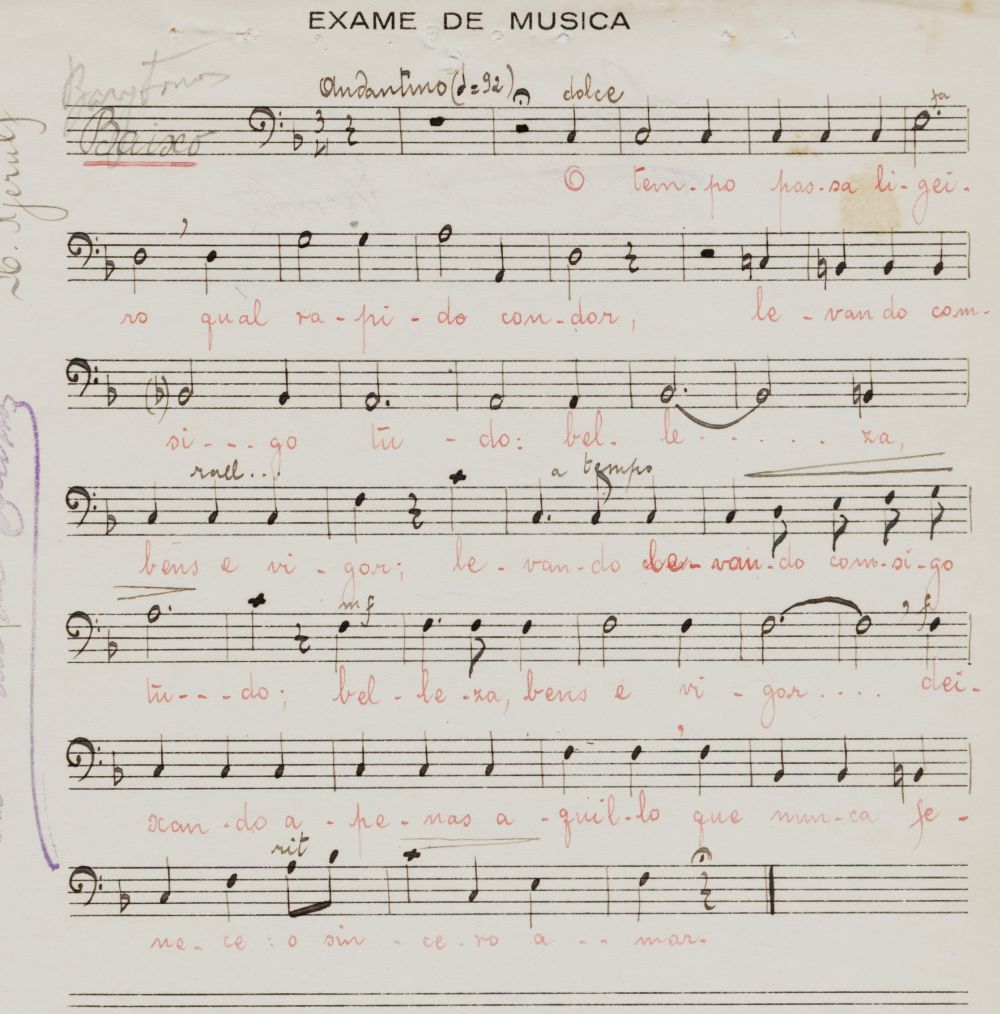 EXAME DE MUSICA
Barytonos
Andantino (♩= 92) dolce
Baixo
3
4
fa
O tem-po pas-sa li-gei-
ro qual ra-pi-do con-dor, le-vando com-
si---go tu-do: bel-le...... za,
rall.. a tempo
bens e vi-gor; le-van-do le-van-do com-si-go
mf f
tu---do; bel-le-za, bens e vi-gor.... dei-
xan-do a-pe-nas a-quil-lo que nun-ca fe-
rit
ne-ce: o sin-ce-ro a--mar.